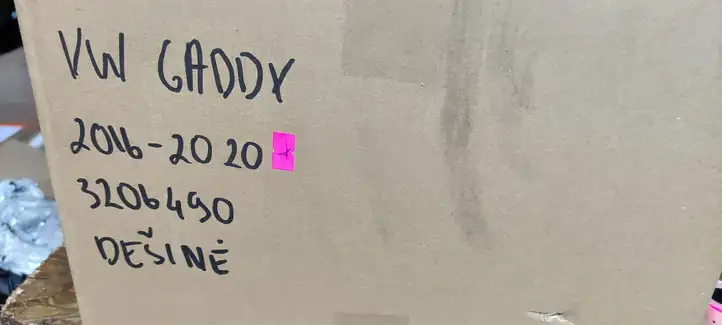 VW CADDY
2016-2020
3206490
DEŠINĖ